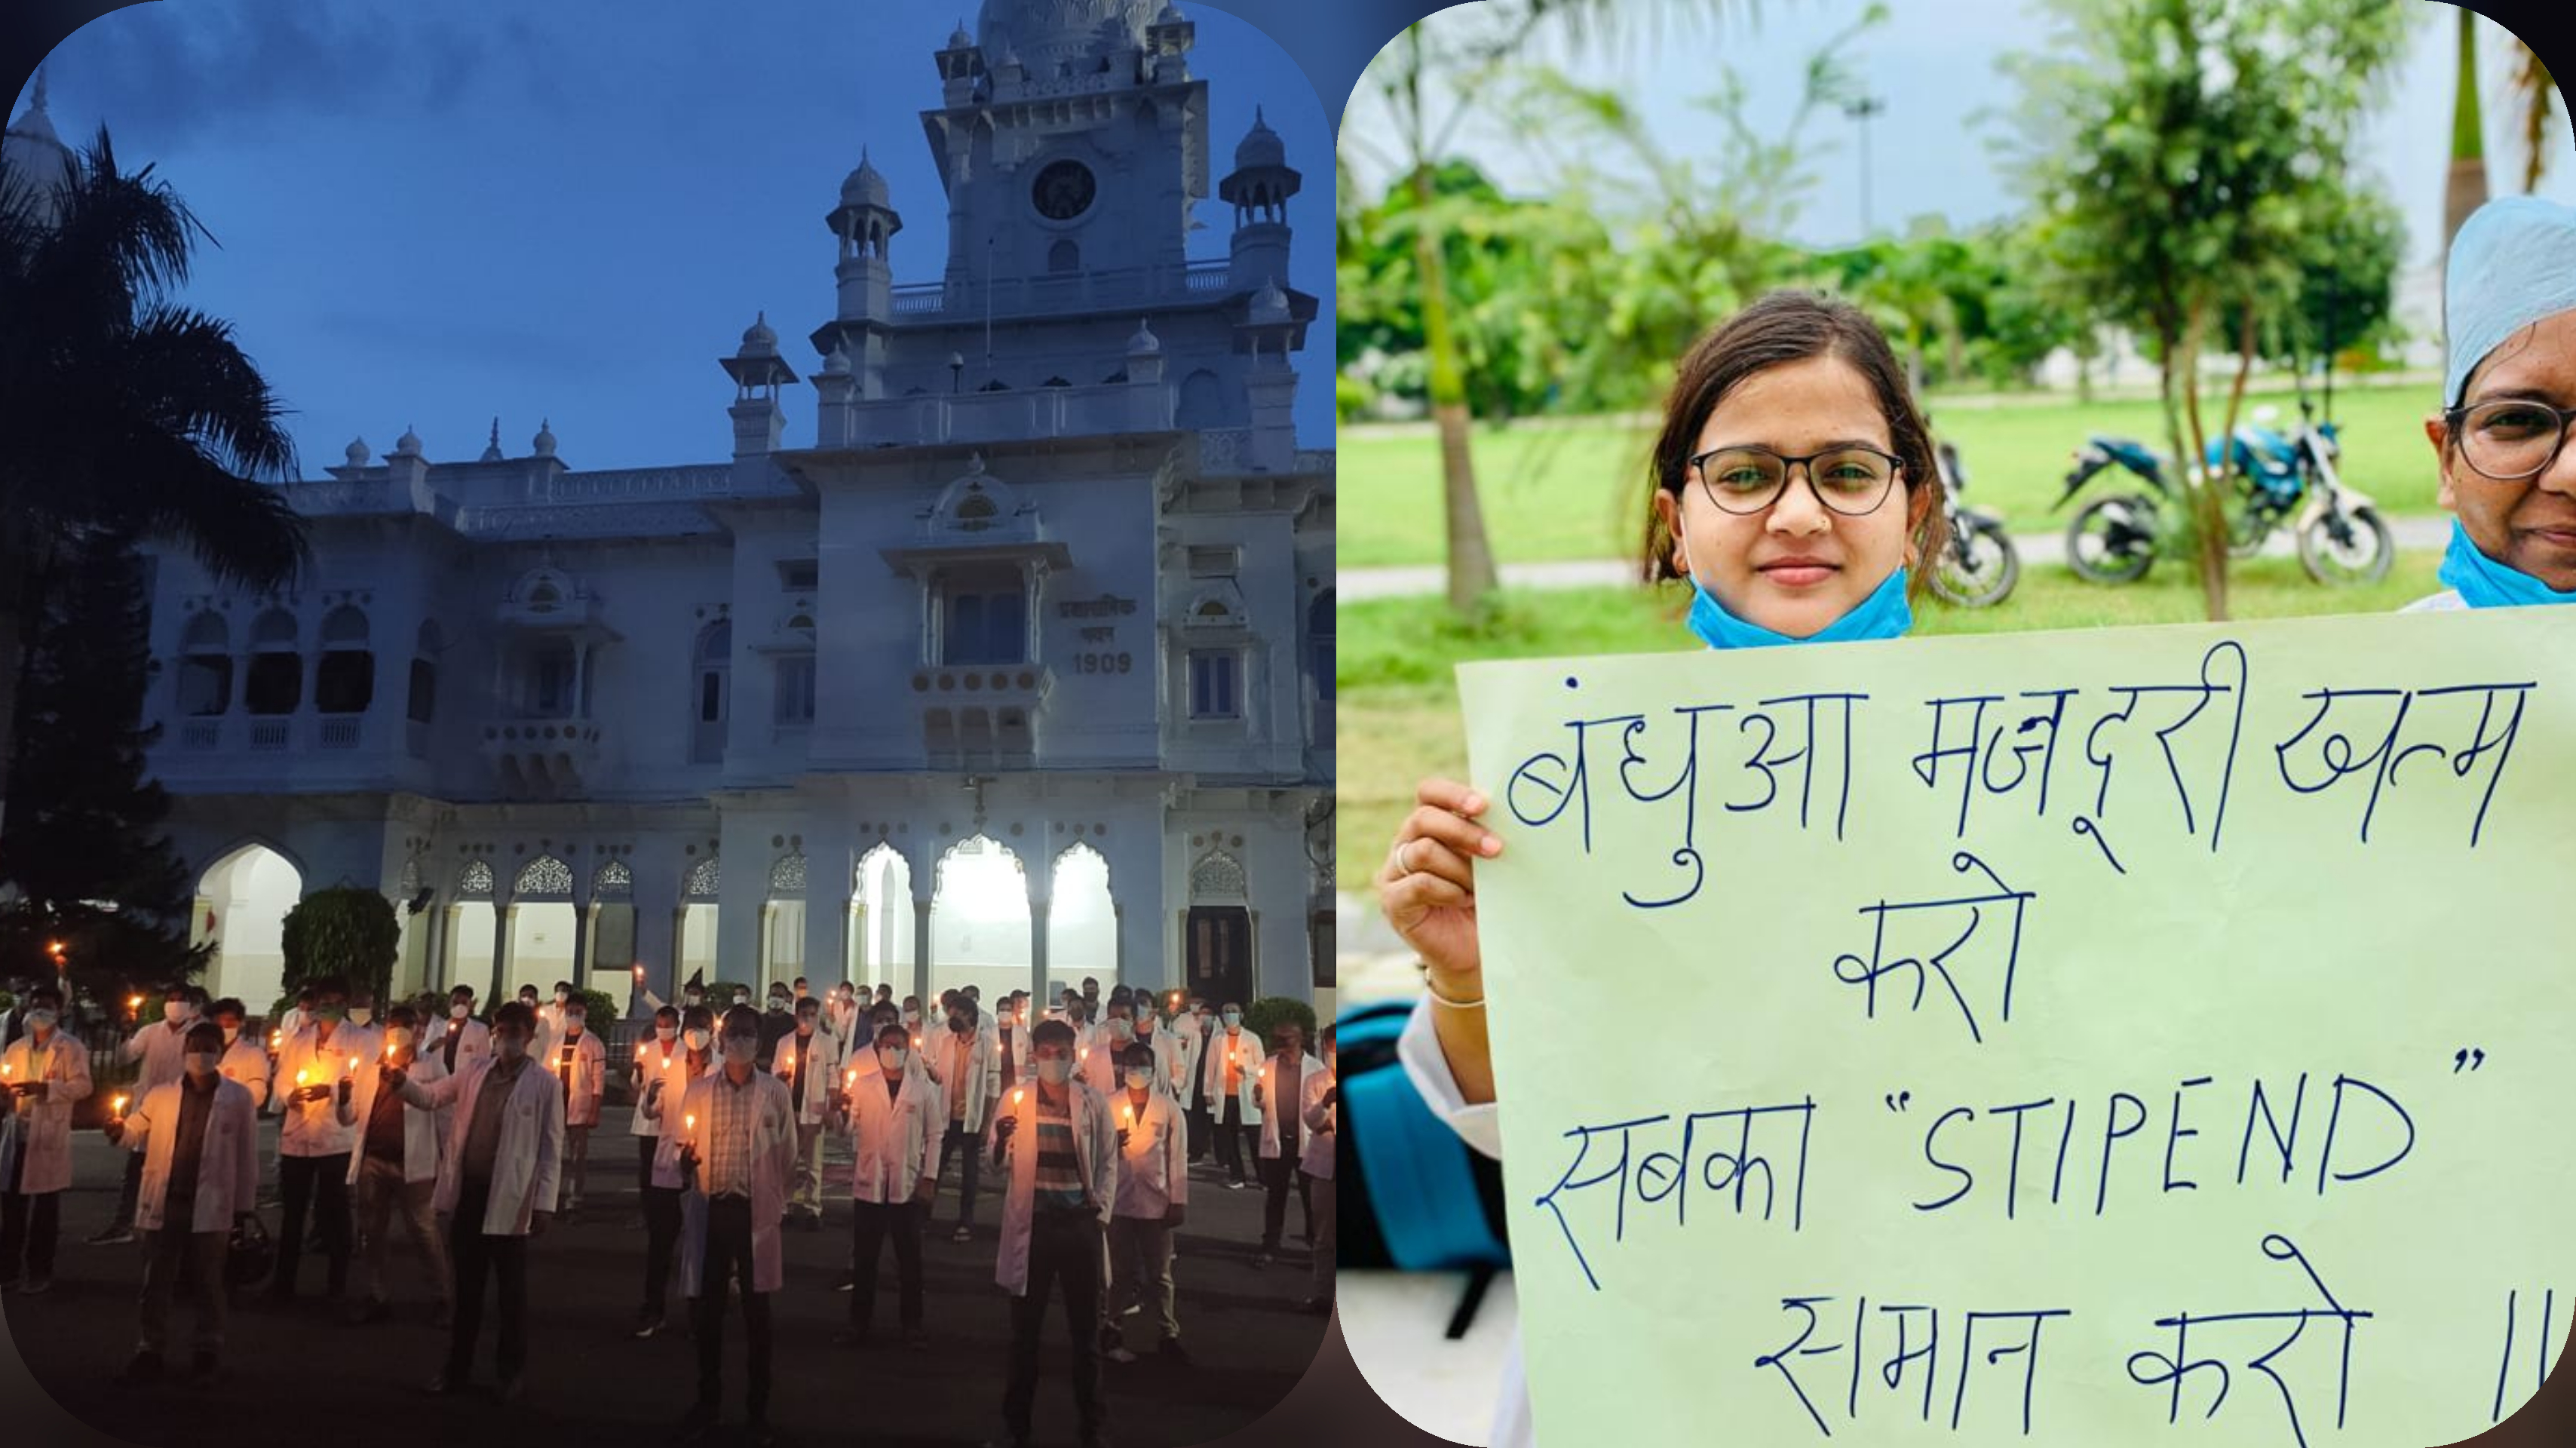 प्रशासनिक
भवन
1909
बंधुआ मजदूरी खत्म
करो
सबका “STIPEND”
समान करो ||